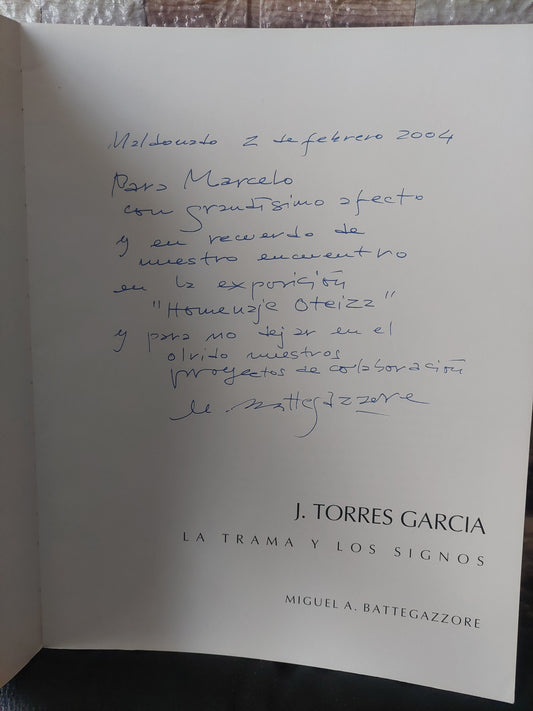 Maldonado 2 de febrero 2004
Para Marcelo
con grandísimo afecto
y en recuerdo de
nuestro encuentro
en la exposición
"Homenaje Oteiza"
y para no dejar en el
olvido nuestros
proyectos de colaboración
M. Battegazzore
J. TORRES GARCIA
LA TRAMA Y LOS SIGNOS
MIGUEL A. BATTEGAZZORE